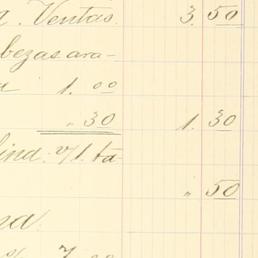 a. Ventas. 3. 50
bezas ara-
a 1. 00
" 30 1. 30
lind. v/. ta
" 50
na.